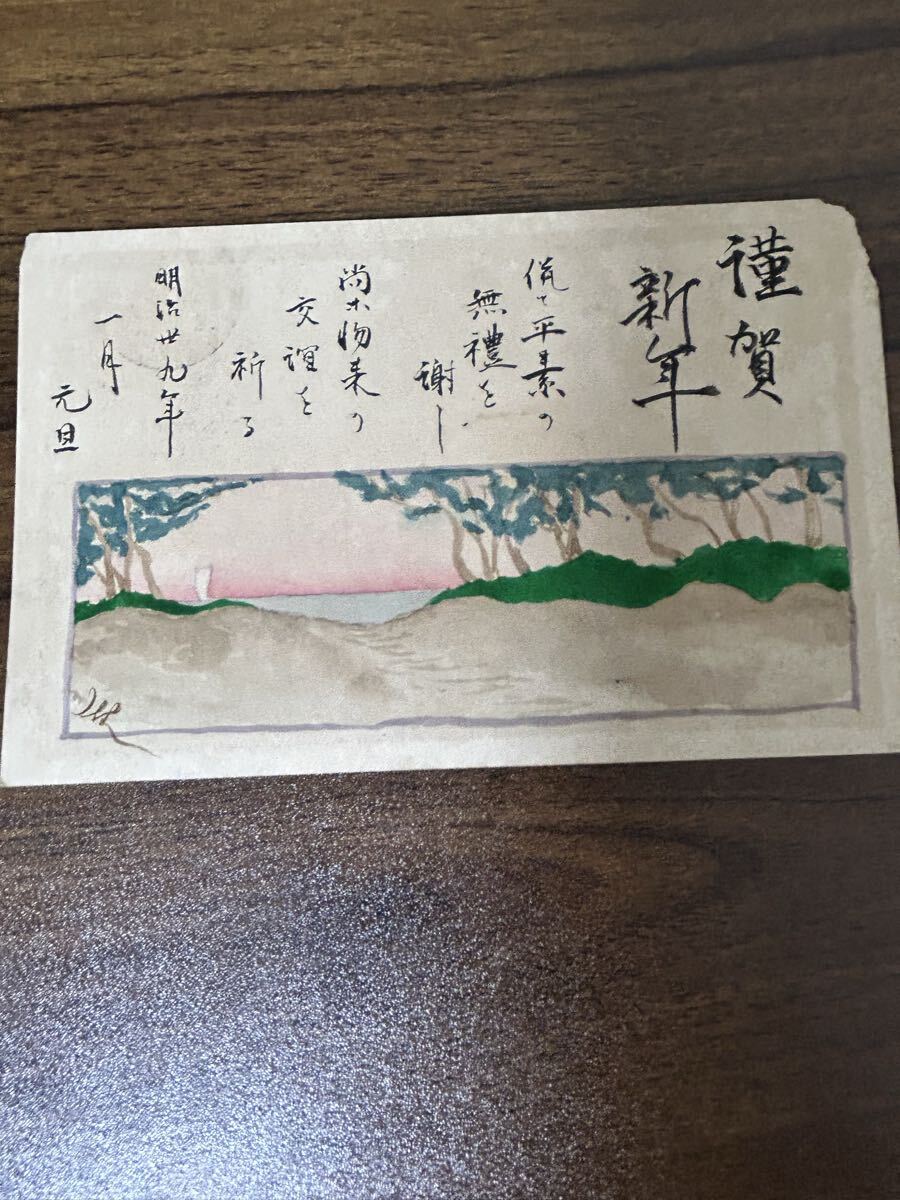 謹賀
新年
併て平素の
無禮を
謝し
尚ホ物来の
交誼を
祈る
明治卅九年
一月
元旦